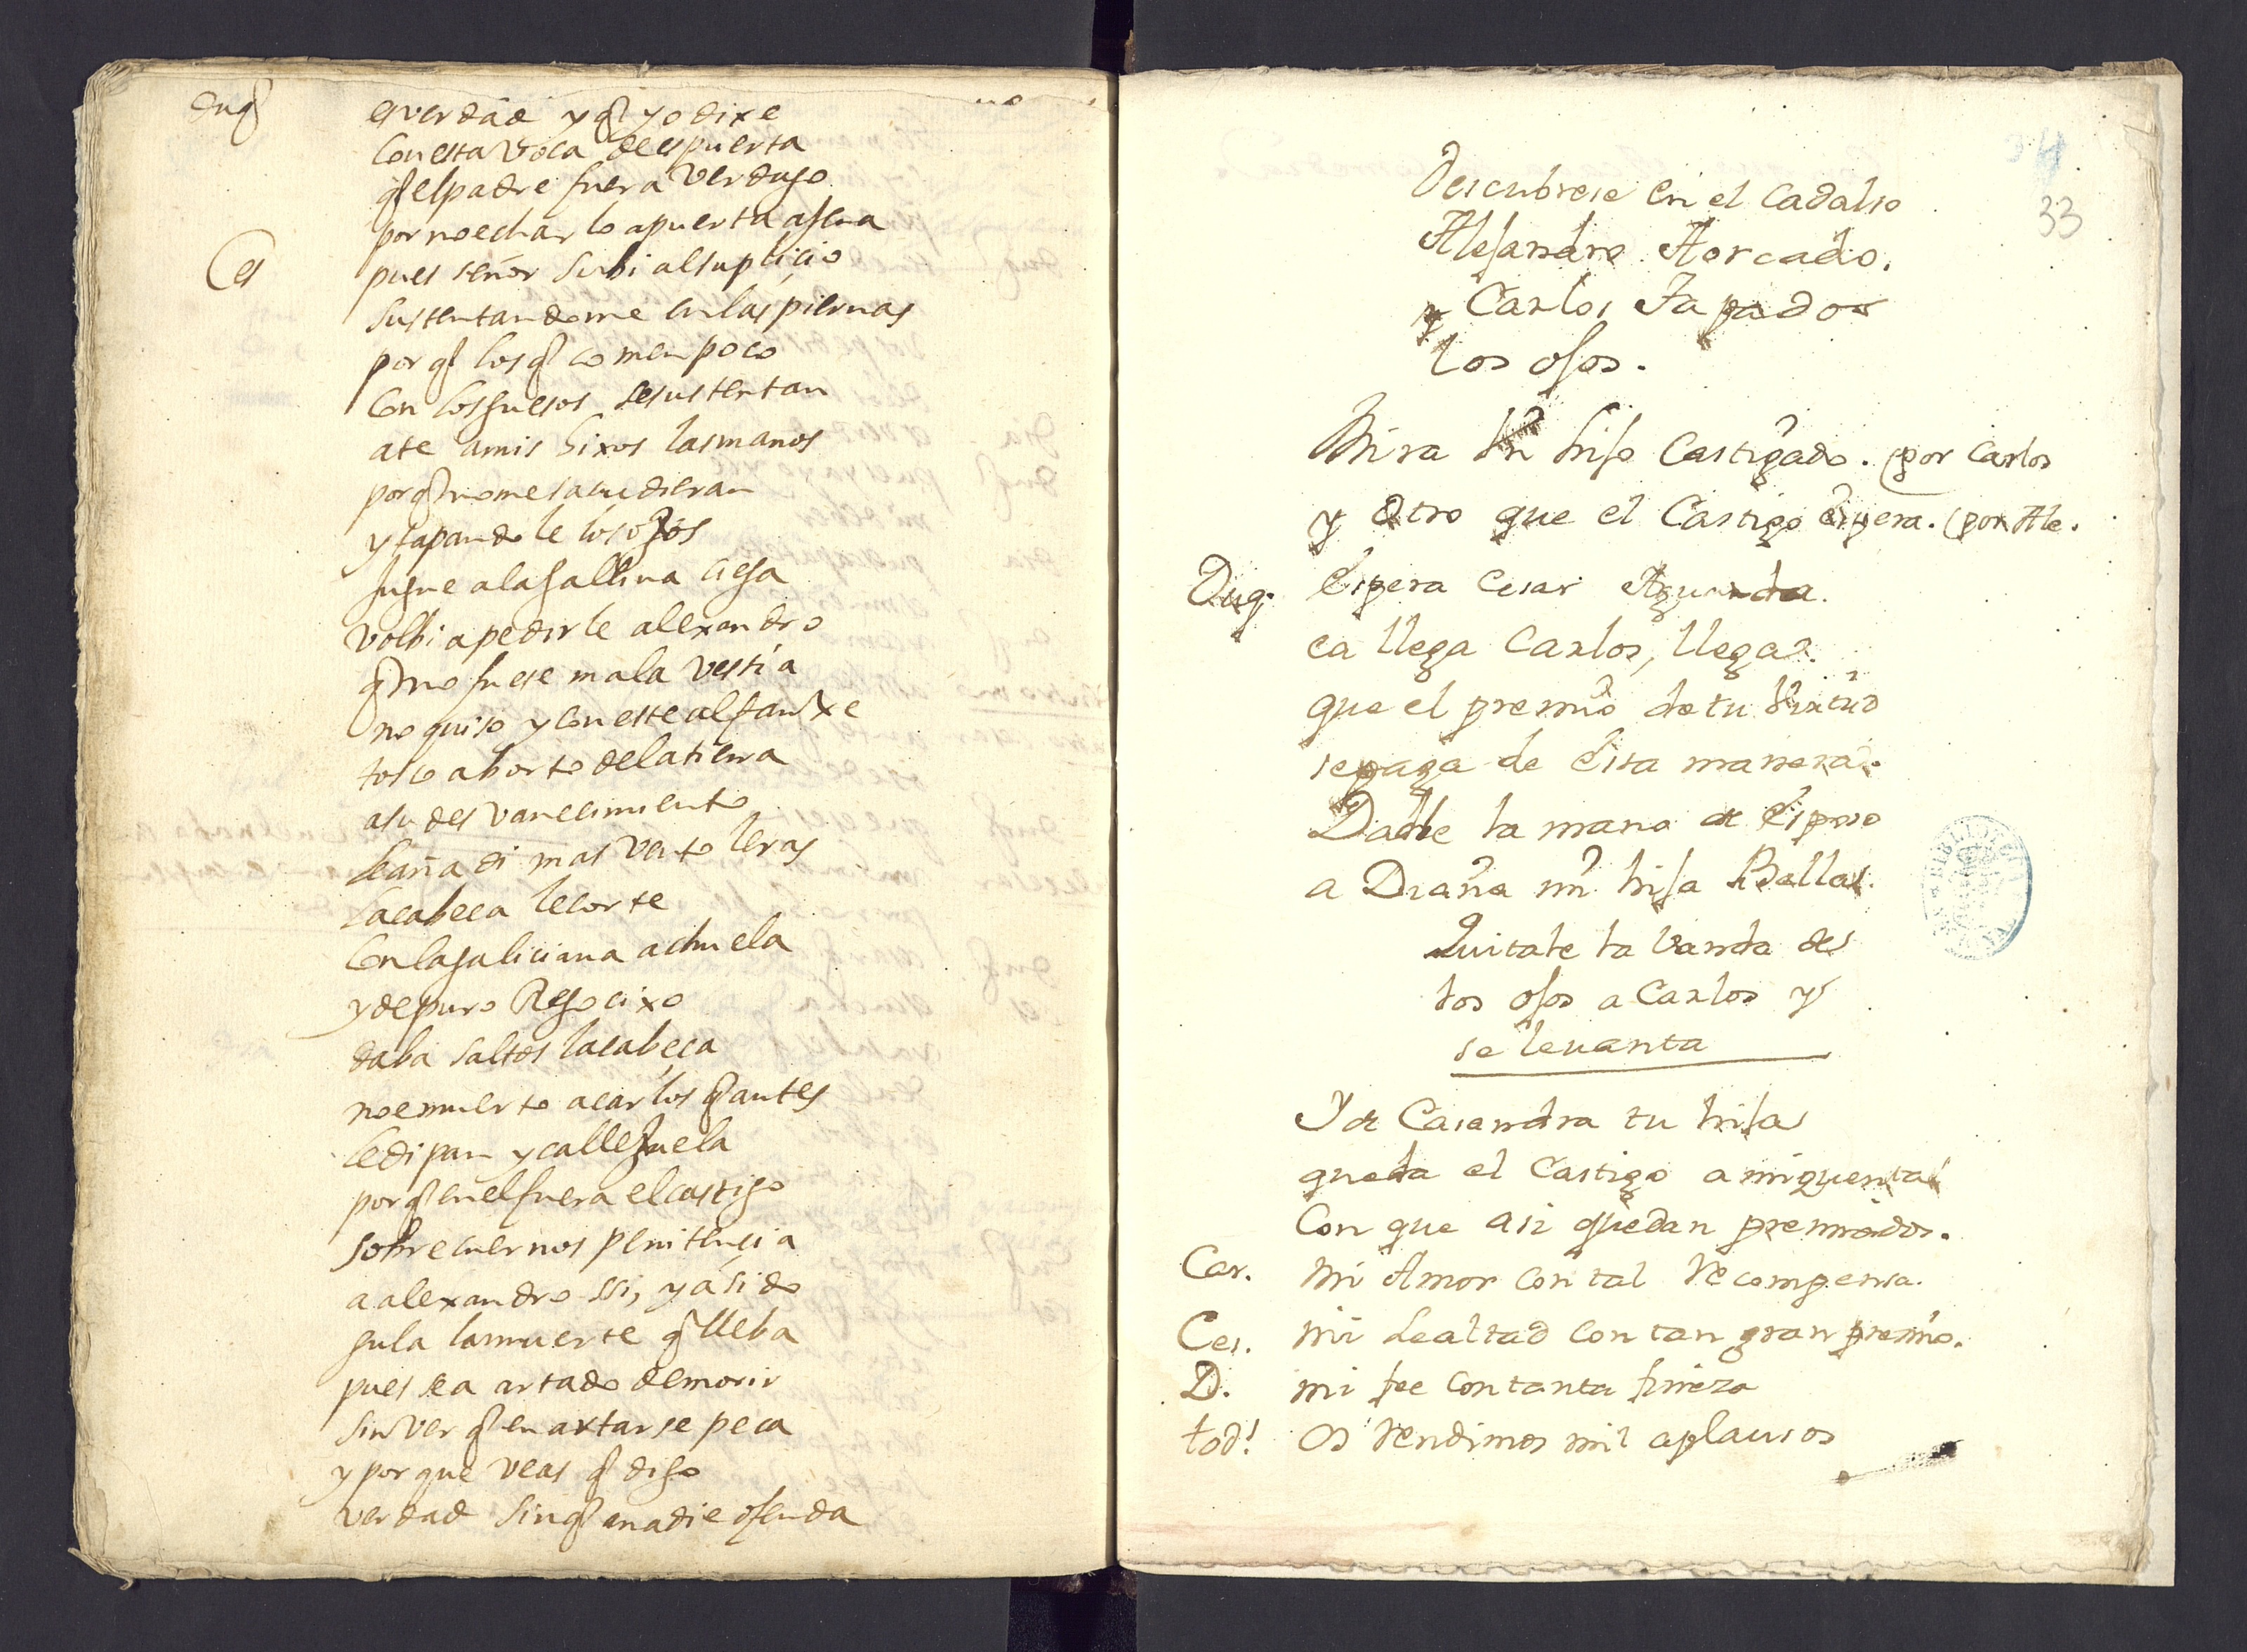 Duq̃ es verdad y q̃ yo dixe
con esta voca deespuerta
q̃ el padre fuera verdugo
por no echarlo a puerta agena
Ces pues señor subi al suplicio
sustentandome en las piernas
por q̃ los q̃ comen poco
con los guesos se sustentan
ate a mis hixos las manos
por q̃ no me sacudieran
y tapandole los ojos
jugue a la gallina ciega
volbi a pedirle alexandro
q̃ no fuese mala vestia
no quiso y con este alfanxe
tosco aborto de la tierra
a su desvanecimiento
le añadi mas
la cabeca le corte
con la galiciana achuela
y de puro Regocixo
daba saltos la cabeça
no e muerto a carlos q̃ antes
le di pan y callejuela
por q̃ en el fuera el castigo
sobre cuernos penitençia
a alexandro ssi, y a sido
gula la muerte q̃ lleba
pues se a artado de morir
sin ver q̃ en artarse peca
y por que veas q̃ digo
verdad sin q̃ a nadie ofenda
33
Descubrese en el cadalso
Alejandro Aorcado.
y Carlos Tapados
los ojos.
Mira tu hijo Castigado. (por Carlos
y Otro que el Castigo espera. (por Ale.
Duq. Espera Cesar Aguarda.
ea llega Carlos, llega.
que el premio de tu virtud
se paga de Esta manera.
Dadle la mano de Esposo
a Diana mi hija Bella.
Quitale la vanda de
los ojos a Carlos y
se levanta
Y de Casandra tu hija
queda el Castigo a mi quenta
Con que asi quedan premiados.
Car. mi Amor con tal Recompensa.
Ces. mi Lealtad con tan gran premio.
D. mi fee con tanta fineza
tod! Os Rendimos mil aplausos